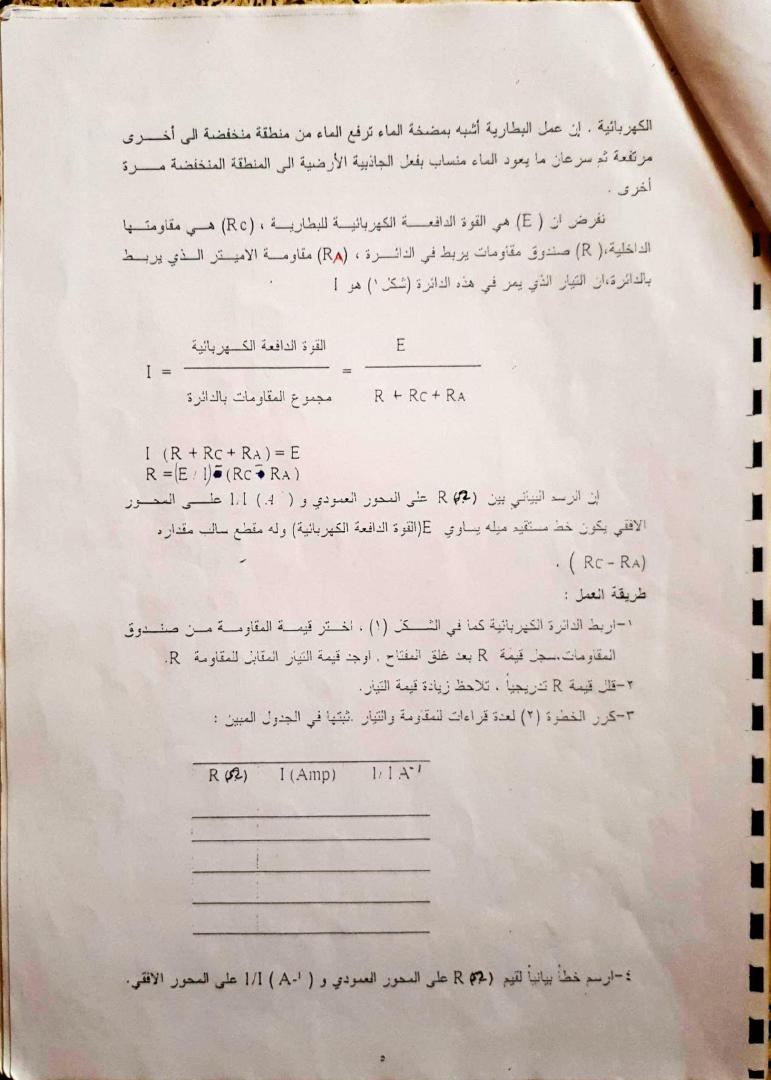 الكهربائية . إن عمل البطارية أشبه بمضخة الماء ترفع الماء من منطقة منخفضة الى أخرى
مرتفعة ثم سرعان ما يعود الماء منساب بفعل الجاذبية الأرضية الى المنطقة المنخفضة مرة
أخرى .
نفرض ان ( E ) هي القوة الدافعة الكهربائية للبطارية ، (Rc) هي مقاومتها
الداخلية،( R ) صندوق مقاومات يربط في الدائرة ، (RA) مقاومة الاميتر الذي يربط
بالدائرة،ان التيار الذي يمر في هذه الدائرة (شكل ١) هو I
القوة الدافعة الكهربائية E
I = =
مجموع المقاومات بالدائرة R + RC + RA
I (R + RC + RA ) = E
R =(E / I)- (RC - RA )
إن الرسم البياني بين R (Ω) على المحور العمودي و ( A ) 1/I على المحور
الافقي يكون خط مستقيم ميله يساوي E(القوة الدافعة الكهربائية) وله مقطع سالب مقداره
( RC - RA) .
طريقة العمل :
١-اربط الدائرة الكهربائية كما في الشكل (١) ، اختر قيمة المقاومة من صندوق
المقاومات،سجل قيمة R بعد غلق المفتاح . اوجد قيمة التيار المقابل للمقاومة R.
٢-قلل قيمة R تدريجياً ، تلاحظ زيادة قيمة التيار.
٣-كرر الخطوة (٢) لعدة قراءات للمقاومة والتيار .ثبتها في الجدول المبين :
R (Ω) I (Amp) 1/ I A-1
٤-ارسم خطاً بيانياً لقيم R (Ω) على المحور العمودي و 1/I ( A-1 ) على المحور الافقي.
٥